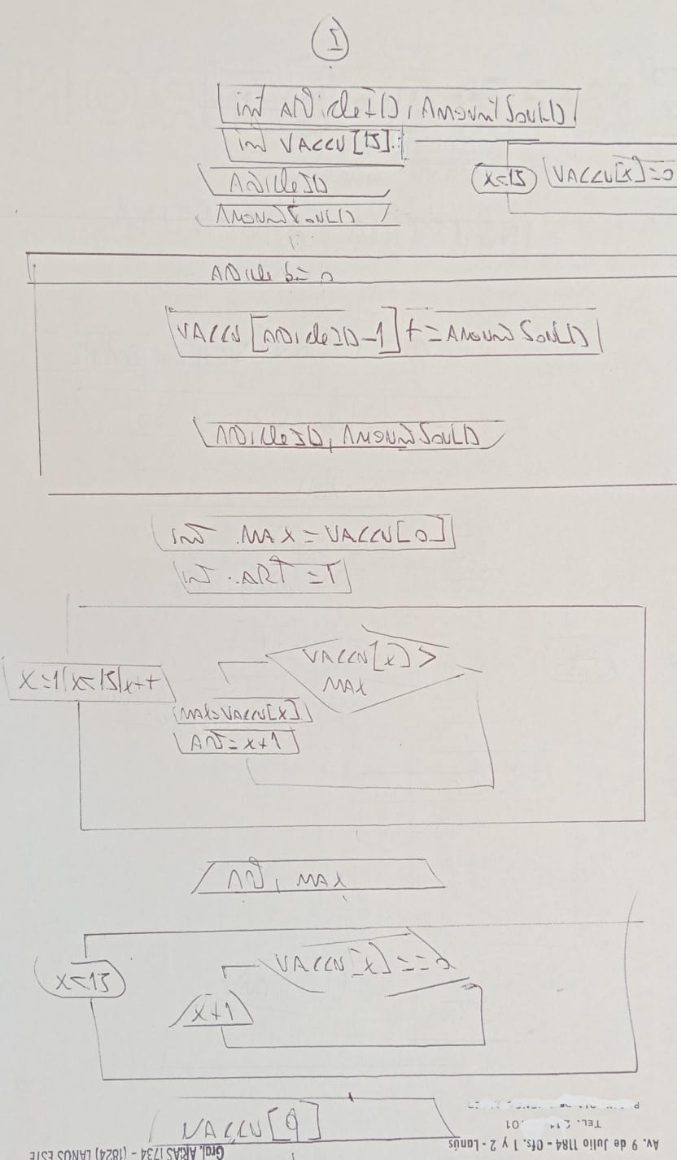 1
int ArticleID, AmountSoulD
int VACCU[15]
X<15 VACCU[X]=0
ArticleID
AmountSoulD
VACCU[ArticleID-1] += AmountSoulD
ArticleID, AmountSoulD
int MAX = VACCU[0]
int ART = 1
VACCU[x] >
MAX
X=1|X<15|x++
MAX=VACCU[X]
ART=x+1
ART, MAX
X<15
VACCU[x]==0
x+1
VACCU[9]
TEL.
Av. 9 de Julio 1184 - Ofs. 1 y 2 - Lanús
Gral. ARIAS 1734 - (1824) LANUS ESTE